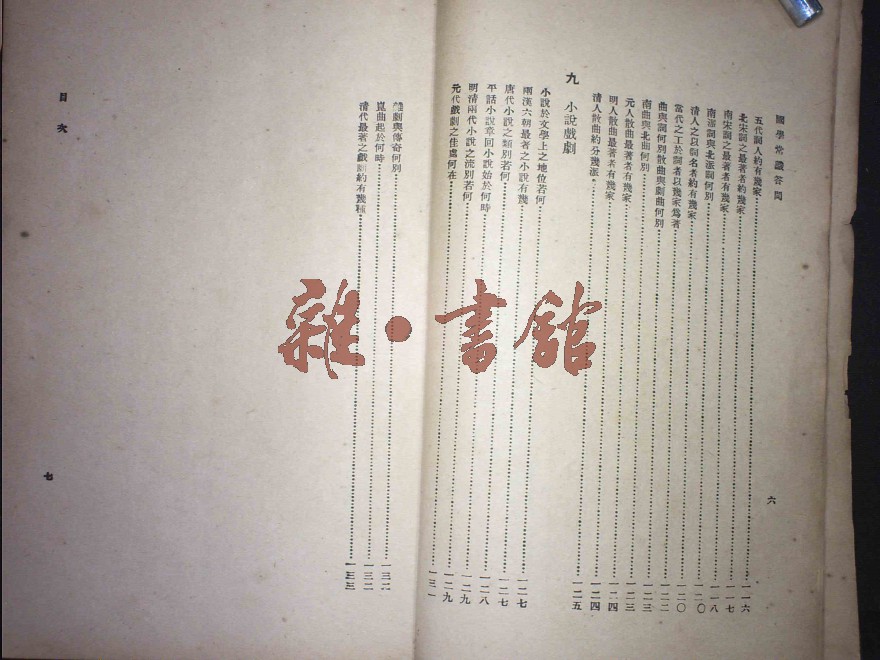 國學常識答問
六
五代詞人約有幾家 一一六
北宋詞之最著者約幾家 一一七
南宋詞之最著者有幾家 一一八
南派詞與北派詞何別 一二〇
清人之以詞名者約有幾家
當代之工於詞者以幾家爲著 一二〇
曲與詞何別散曲與劇曲何別 一二二
南曲與北曲何別 一二三
元人散曲最著者有幾家 一二三
明人散曲最著者有幾家 一二四
清人散曲約分幾派 一二四
九 小說戲劇 一二五
小說於文學上之地位若何
兩漢六朝最著之小說有幾 一二七
唐代小說之類別若何 一二七
平話小說章回小說始於何時 一二八
明清兩代小說之流別若何 一二九
元代戲劇之佳處何在 一二九
一三一
雜劇與傳奇何別 一三二
崑曲起於何時 一三二
清代最著之戲劇約有幾種 一三三
目次
七
雜·書館